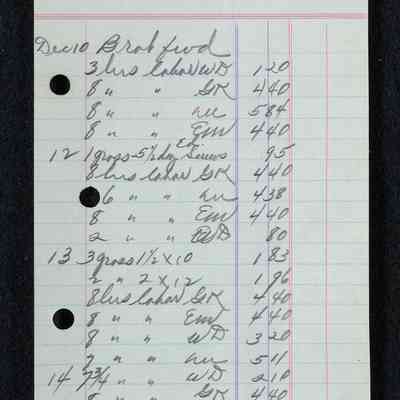 Dec 10 Brot fwd
3 hrs labor WD 1 20
8 " " GK 4 40
8 " " au 5 84
8 " " Em 4 40
12 1 gross 5/8 Screws 95
8 hrs labor GK 4 40
6 " " au 4 38
8 " " Em 4 40
2 " " WD 80
13 3 gross 1 1/2 x 10 1 83
2 " 2 x 12 1 96
8 hrs labor GK 4 40
8 " " Em 4 40
8 " " WD 3 20
7 " " au 5 11
14 7 3/4 " " WD 2 10
8 " " GK 4 40